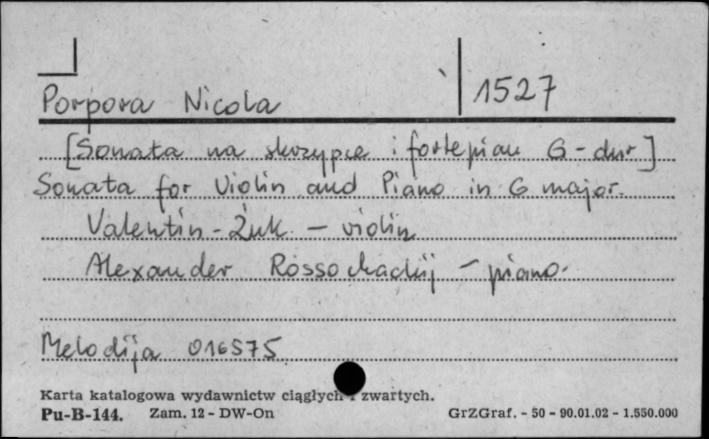 Porpora Nicola 1527
[Sonata na skrzypce i fortepian G-dur]
Sonata for Violin and Piano in G major.
Valentin - Żuk - violin
Alexander Rossochackij - piano.
Melodija 016575
Karta katalogowa wydawnictw ciągłych i zwartych.
Pu-B-144. Zam. 12 - DW-On GrZGraf. - 50 - 90.01.02 - 1.550.000